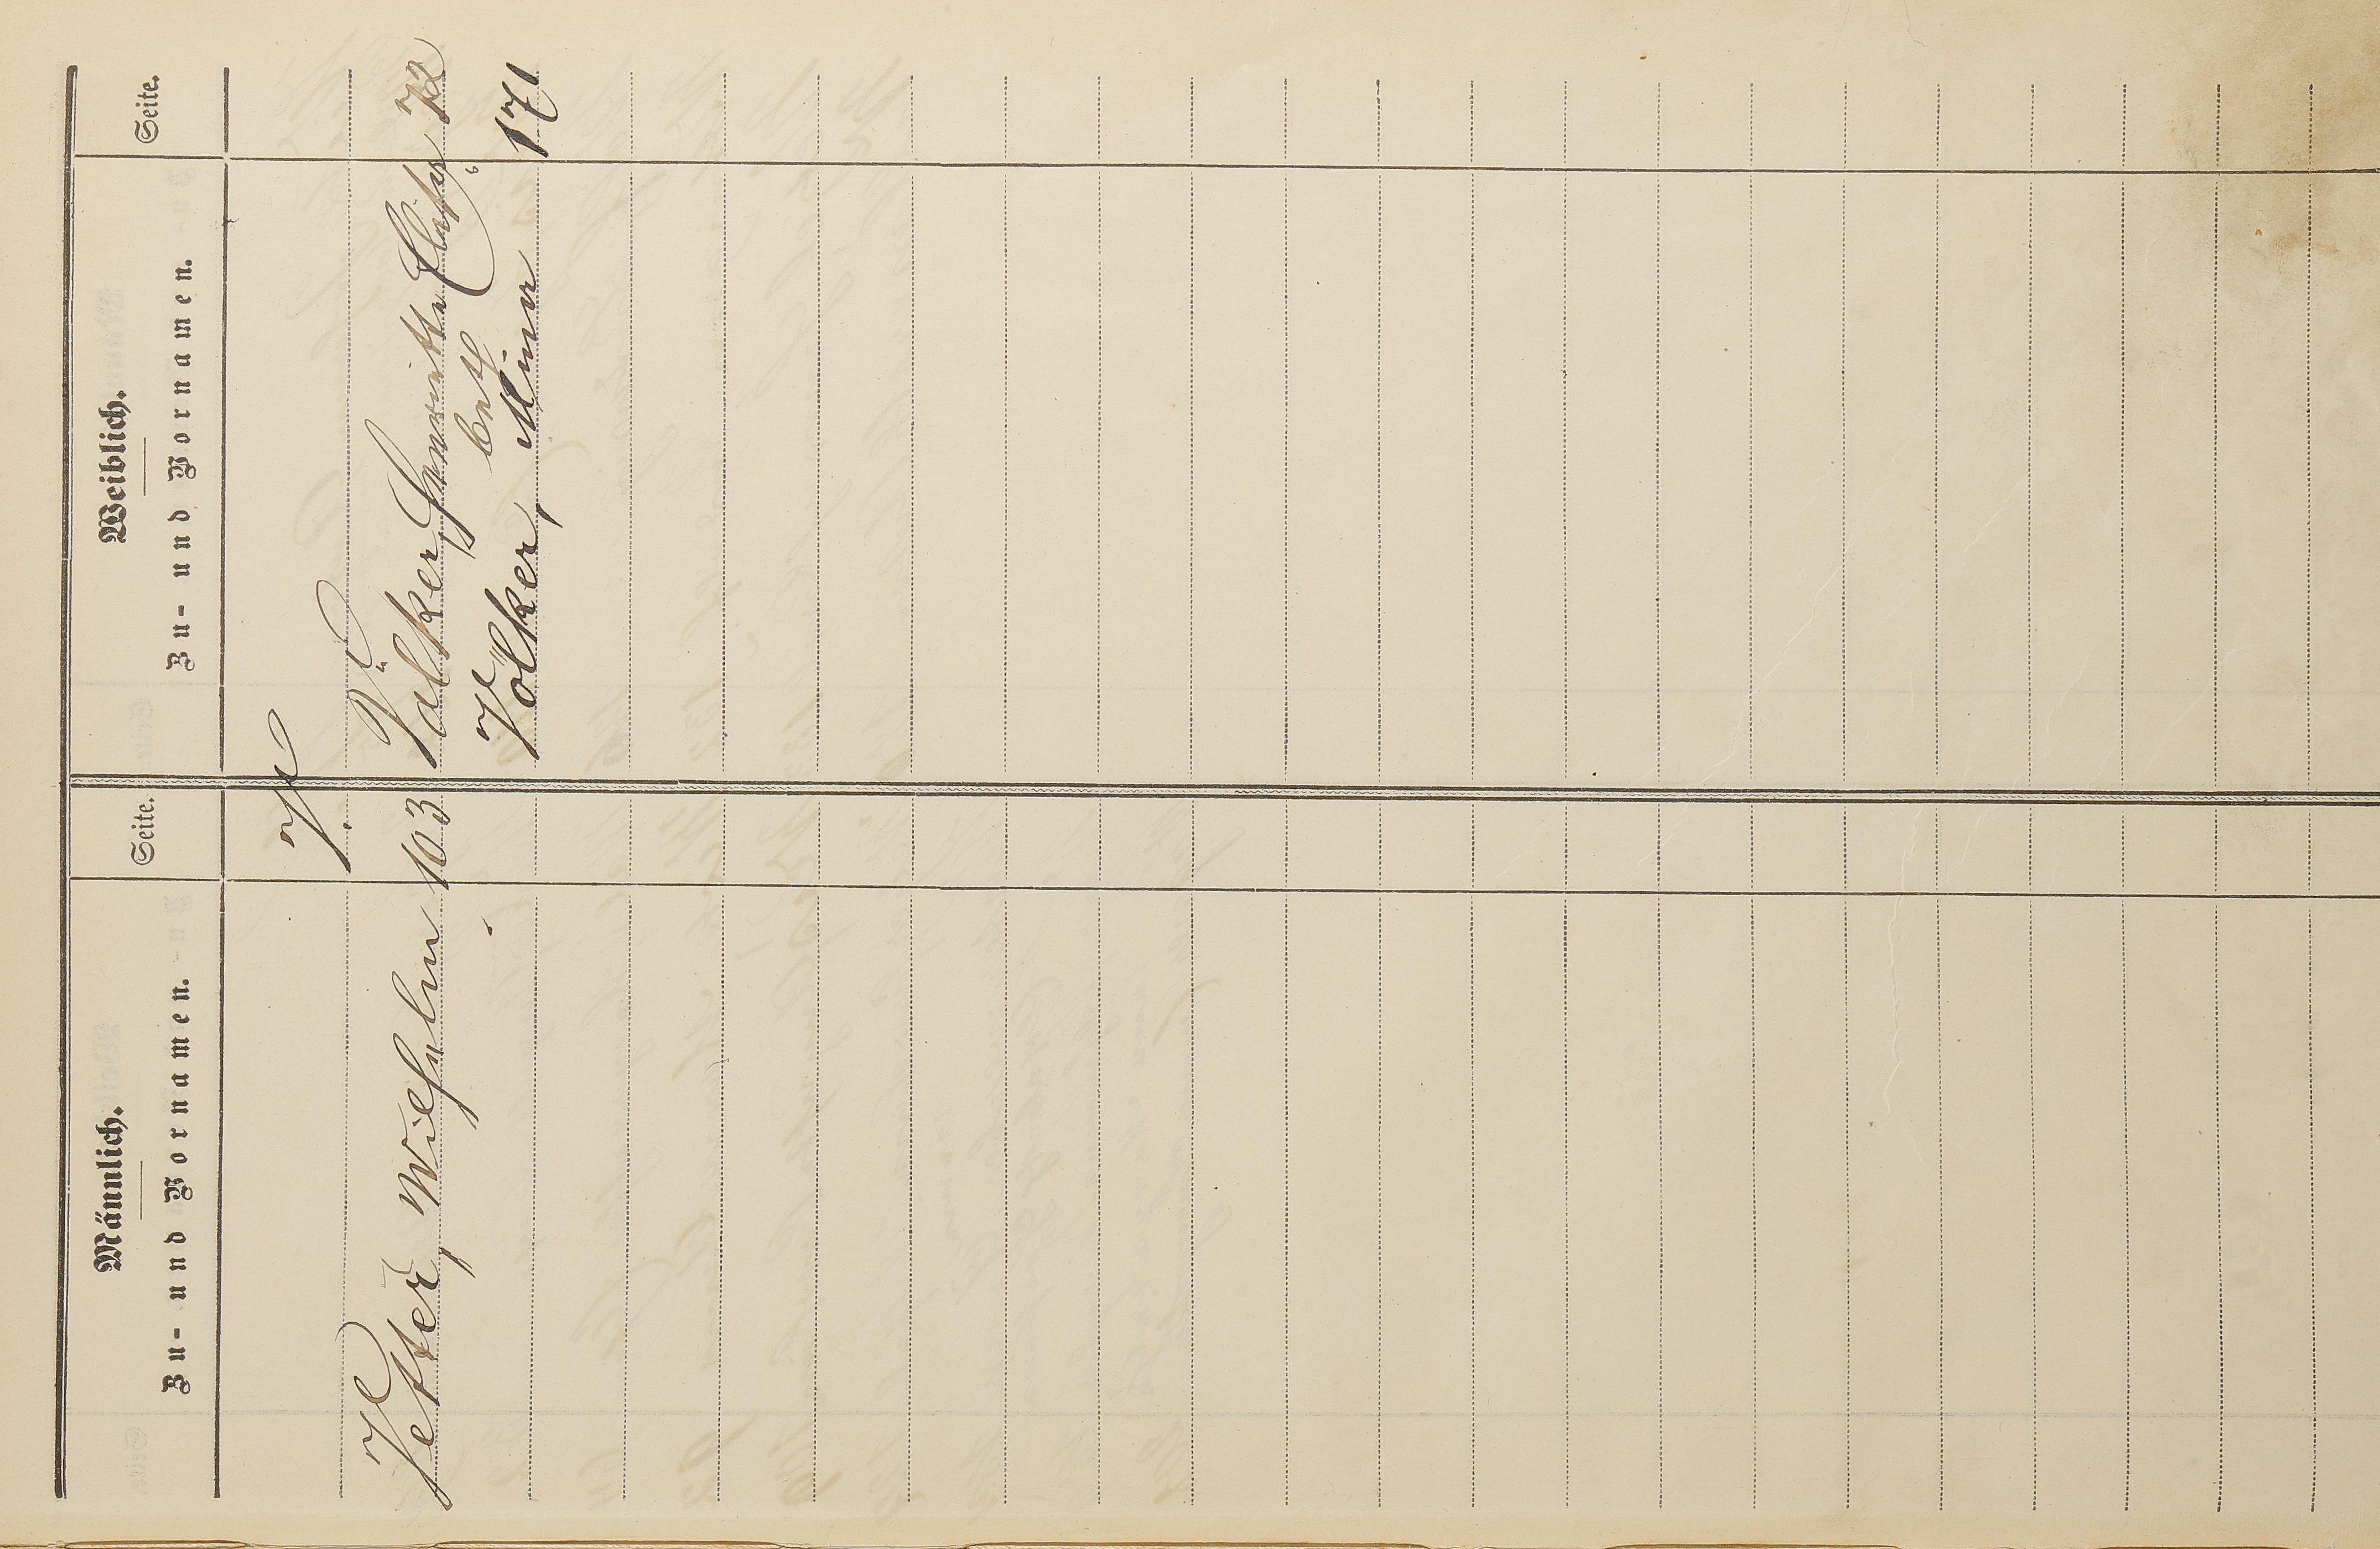 Männlich.
Zu- und Vornamen.
Seite.
Weiblich.
Zu- und Vornamen.
Seite.
V.
Vetter, Wilhelm 103
Välker, Henriette Elisa 72
beth
Völker, Minna 171